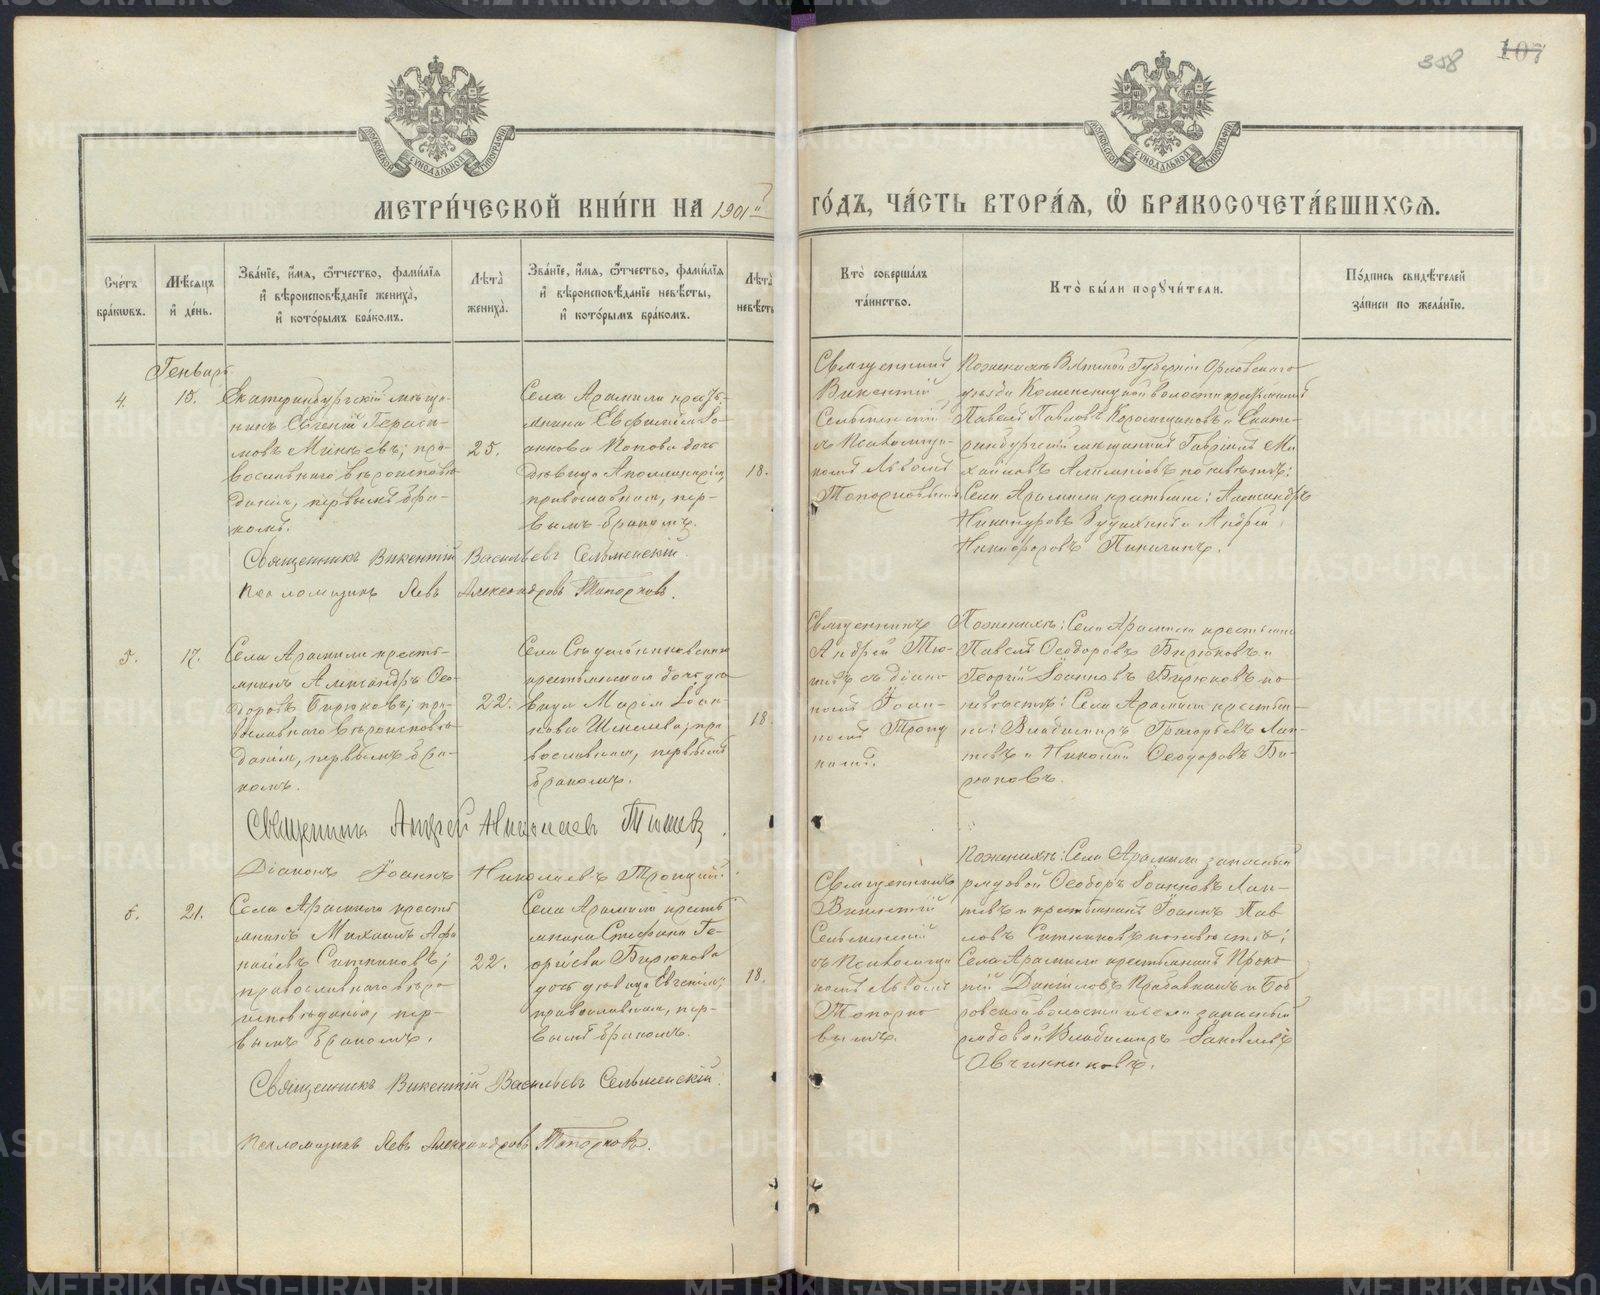 358 107
МОСКОВСКОЙ СѴНОДАЛЬНОЙ ТИПОГРАФІИ
МОСКОВСКОЙ СѴНОДАЛЬНОЙ ТИПОГРАФІИ
МЕТРИ́ЧЕСКОЙ КНИ́ГИ НА 1901й ГО́ДЪ, ЧА́СТЬ ВТОРА́Я, Ѽ БРАКОСОЧЕТА́ВШИХСЯ.
Сче́тъ бра́кѡвъ.
Мѣ́сяцъ и҆ де́нь.
Зва́нїе, и҆́мя, ѻ҆́тчество, фами́лїя и҆ вѣроисповѣ́данїе жениха̀, и҆ кото́рымъ бра́комъ.
Лѣта̀ жениха̀.
Зва́нїе, и҆́мя, ѻ҆́тчество, фами́лїя и҆ вѣроисповѣ́данїе невѣ́сты, и҆ кото́рымъ бра́комъ.
Лѣта̀ невѣ́сты
Кто̀ соверша́лъ та́инство.
Кто̀ бы́ли порꙋчи́тели.
По́дпись свидѣ́телей за́писи по жела́нїю.
Генварь
4.
15.
Екатеринбургскій мѣща-
нинъ Евгеній Гераси-
мовъ Минѣевъ; пра-
вославнаго вѣроисповѣ
данія, первымъ бра-
комъ.
25.
Села Арамили кресть-
янина Евфимія Іо-
аннова Попова дочь
дѣвица Аполлинарія,
православная, пер-
вымъ бракомъ.
18.
Священникъ
Викентій
Сельменскій
съ Псаломщи-
комъ Львомъ
Топорковымъ
По женихѣ Вятской Губерніи Орловскаго
уѣзда волости крестьянинъ
Павелъ Павловъ и Екате-
ринбургскій мѣщанинъ Гавріилъ Ми
хайловъ по невѣстѣ:
Села Арамили крестьяне: Александръ
Никаноровъ и Андрей
Никифоровъ
Священникъ Викентій Васильевъ Сельменскій.
Псаломщикъ Левъ Александровъ Топорковъ.
5.
17.
Села Арамили кресть-
янинъ Александръ Ѳео-
доровъ Бирюковъ; пра-
вославнаго вѣроисповѣ-
данія, первымъ бра-
комъ.
22.
Села
крестьянина дочь дѣ-
вица Марія Іоан-
нова Шмелева; пра
вославная, первымъ
бракомъ.
18.
Священникъ
Андрей Тю-
съ діако-
номъ Іоан-
номъ Троиц
кимъ.
По женихѣ: Села Арамили крестьяне
Павелъ Ѳеодоровъ Бирюковъ и
Георгій Іоанновъ Бирюковъ по
невѣстѣ: Села Арамили крестья-
не: Владимиръ Григорьевъ Лап-
тевъ и Николай Ѳеодоровъ Би-
рюковъ.
Священникъ Андрей Николаевъ
Діаконъ Іоаннъ Николаевъ Троицкій.
6.
21.
Села Арамили кресть
янинъ Михаилъ Аѳа
насьевъ Ситниковъ;
православнаго вѣро
исповѣданія, пер-
вымъ бракомъ.
22.
Села Арамили кресть
янина Стефана Ге-
оргіева Бирюкова
дочь дѣвица Евгенія;
православная, пер-
вымъ бракомъ.
18.
Священникъ
Викентій
Сельменскій
съ Псаломщи
комъ Львомъ
Топорко
вымъ.
По женихѣ: Села Арамили запасный
рядовой Ѳеодоръ Іоанновъ Лап-
тевъ и крестьянинъ Іоаннъ Пав
ловъ Ситниковъ по невѣстѣ;
Села Арамили крестьянинъ Проко
пій Даніиловъ и Боб
ровской волости и села запасный
рядовой Владимиръ Іаковлевъ
Овчинниковъ.
Священникъ Викентій Васильевъ Сельменскій.
Псаломщикъ Левъ Александровъ Топорковъ.
METRIKI.GASO-URAL.RU